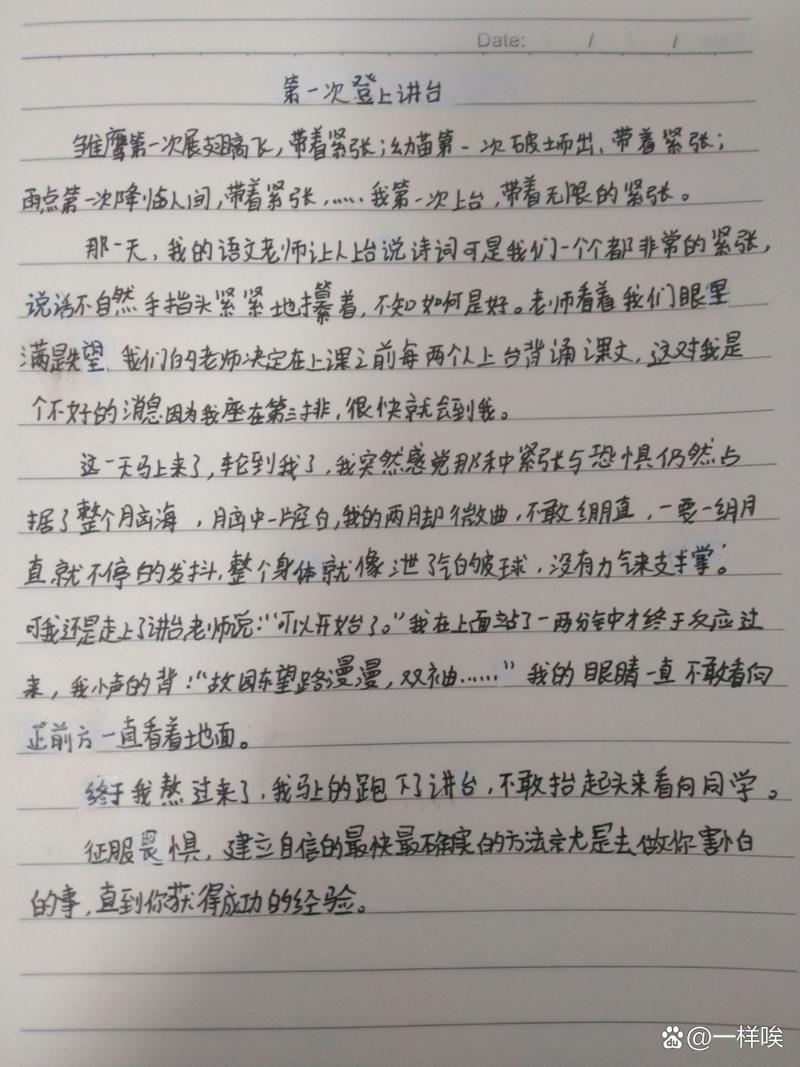 Date: / /
第一次登上讲台
雏鹰第一次展翅高飞，带着紧张；幼苗第一次破土而出、带着紧张；
雨点第一次降临人间，带着紧张，……我第一次上台，带着无限的紧张。
那一天，我的语文老师让人上台说诗词可是我们一个个都非常的紧张，
说话不自然手指头紧紧地攥着，不知如何是好。老师看着我们眼里
满是失望、我们的老师决定在上课之前每两个人上台背诵课文，这对我是
个不好的消息因为我座在第三排，很快就会到我。
这一天马上来了，轮到我了，我突然感觉那种紧张与恐惧仍然占
据了整个脑海，脑中一片空白，我的两脚微曲，不敢绷直，一要一绷
直就不停的发抖，整个身体就像泄了气的皮球，没有力气来支撑掌。
可我还是走上了讲台老师说：“可以开始了。”我在上面站了一两分钟才终于反应过
来，我小声的背：“故园东望路漫漫，双袖……”我的眼睛一直不敢看向
正前方一直看着地面。
终于我熬过来了，我马上的跑下了讲台，不敢抬起头来看向同学。
征服畏惧，建立自信的最快最确实的方法就是去做你害怕
的事，直到你获得成功的经验。
@一样唉